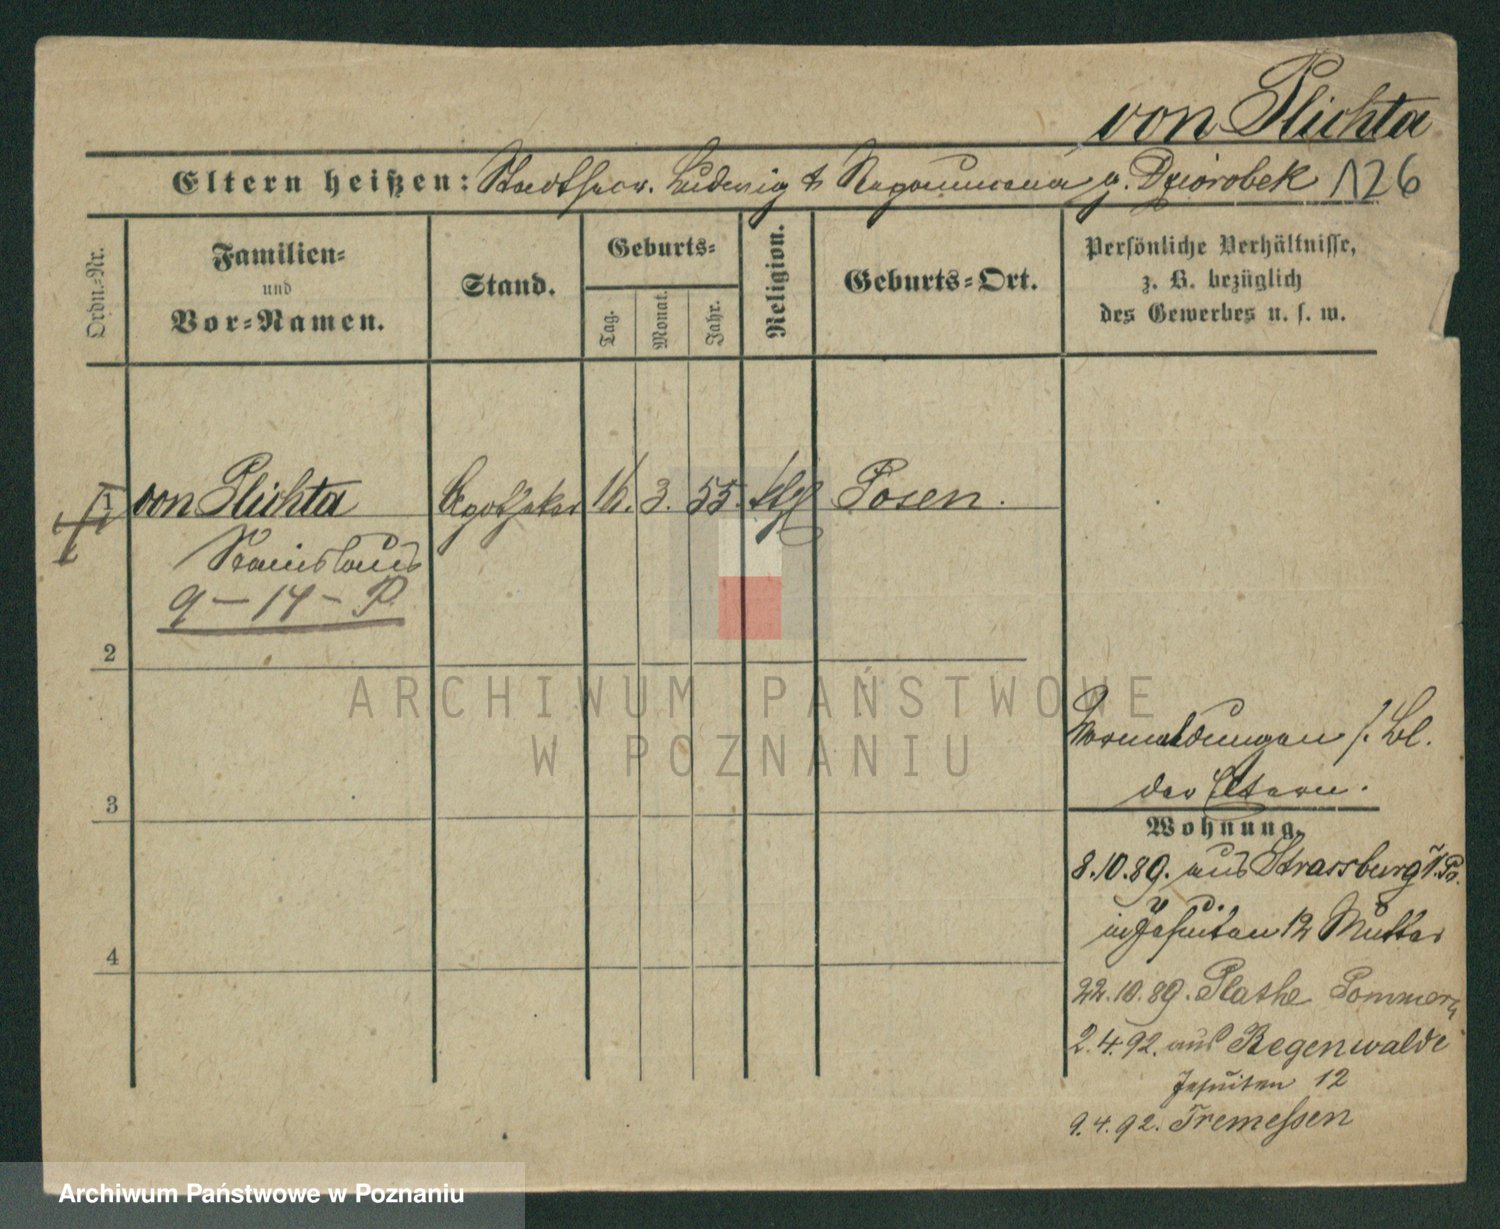 von Plichta
Eltern heißen: Stadtsecr. Ludwig & Nepomucena g. Dziorobek 126
Ordn.-Nr.
Familien-
und
Vor-Namen.
Stand.
Geburts-
Tag.
Monat.
Jahr.
Religion.
Geburts-Ort.
Persönliche Verhältnisse,
z. B. bezüglich
des Gewerbes u. s. w.
von Plichta Apotheker 16. 3. 55. ktl Posen.
Stanislaus
9 – 14 – P.
2
ARCHIWUM PAŃSTWOWE
W POZNANIU
Vormeldungen s. Bl.
der Eltern.
3
Wohnung.
8.10.89. aus Strassburg
Jesuiten 12 Mutter
4
22.10.89. Plathe Pommern
2.4.92. aus Regenwalde
Jesuiten 12
9.4.92. Tremessen
Archiwum Państwowe w Poznaniu